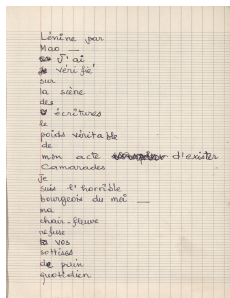 Lénine par
Mao —
J'ai
vérifié
sur
la scène
des
écritures
le
poids véritable
de
mon acte d'exister
Camarades
je
suis l'horrible
bourgeois du moi —
ma
chair-fleuve
refuse
vos
sottises
de pain
quotidien